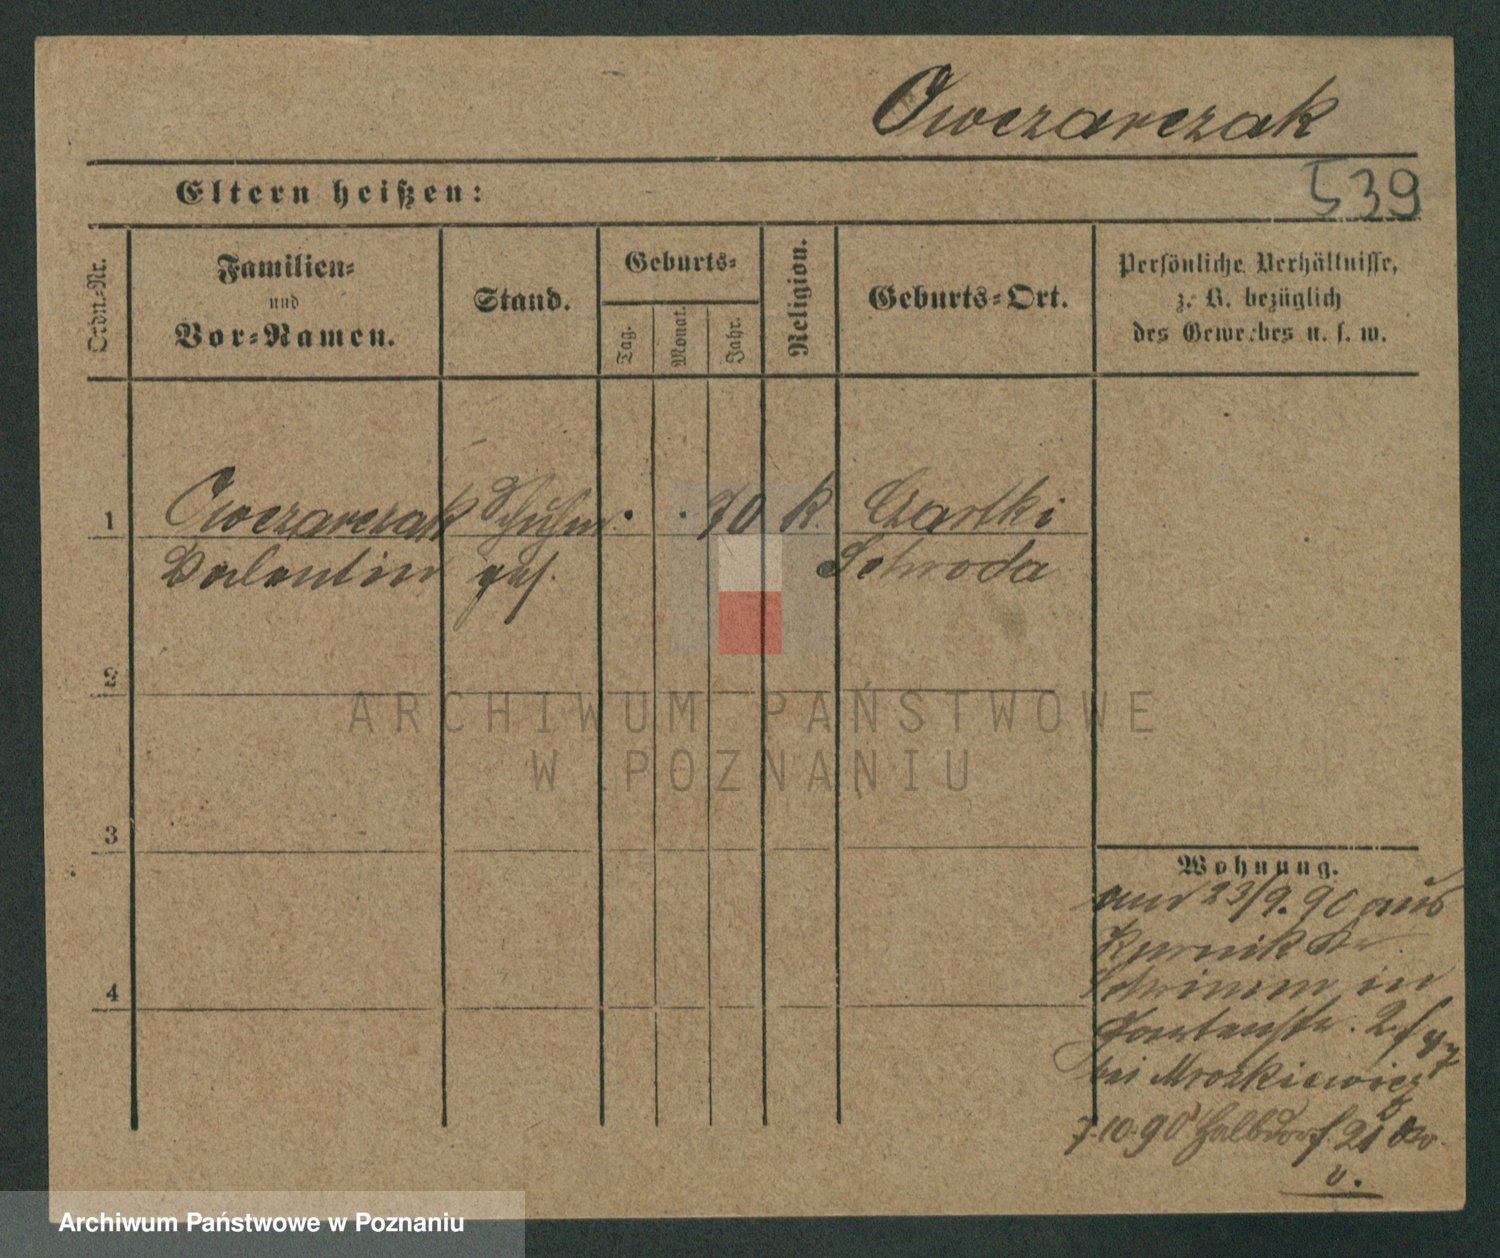 Owczarczak
Eltern heißen:
539
Ordn.-Nr.
Familien-
und
Vor-Namen.
Stand.
Geburts-
Tag.
Monat.
Jahr.
Religion.
Geburts-Ort.
Persönliche Verhältnisse,
z. B. bezüglich
des Gewerbes u. s. w.
1 Owczarczak Schuhm. 70 k. Czartki
Valentin ges. Schroda
2
3
4
Wohnung.
am 23/9. 90 aus
Kurnik Kr.
Schrimm in
Gartenstr. 2
bei Mroskiewicz
7.10.90 Halbdorf 21
v.
ARCHIWUM PAŃSTWOWE
W POZNANIU
Archiwum Państwowe w Poznaniu